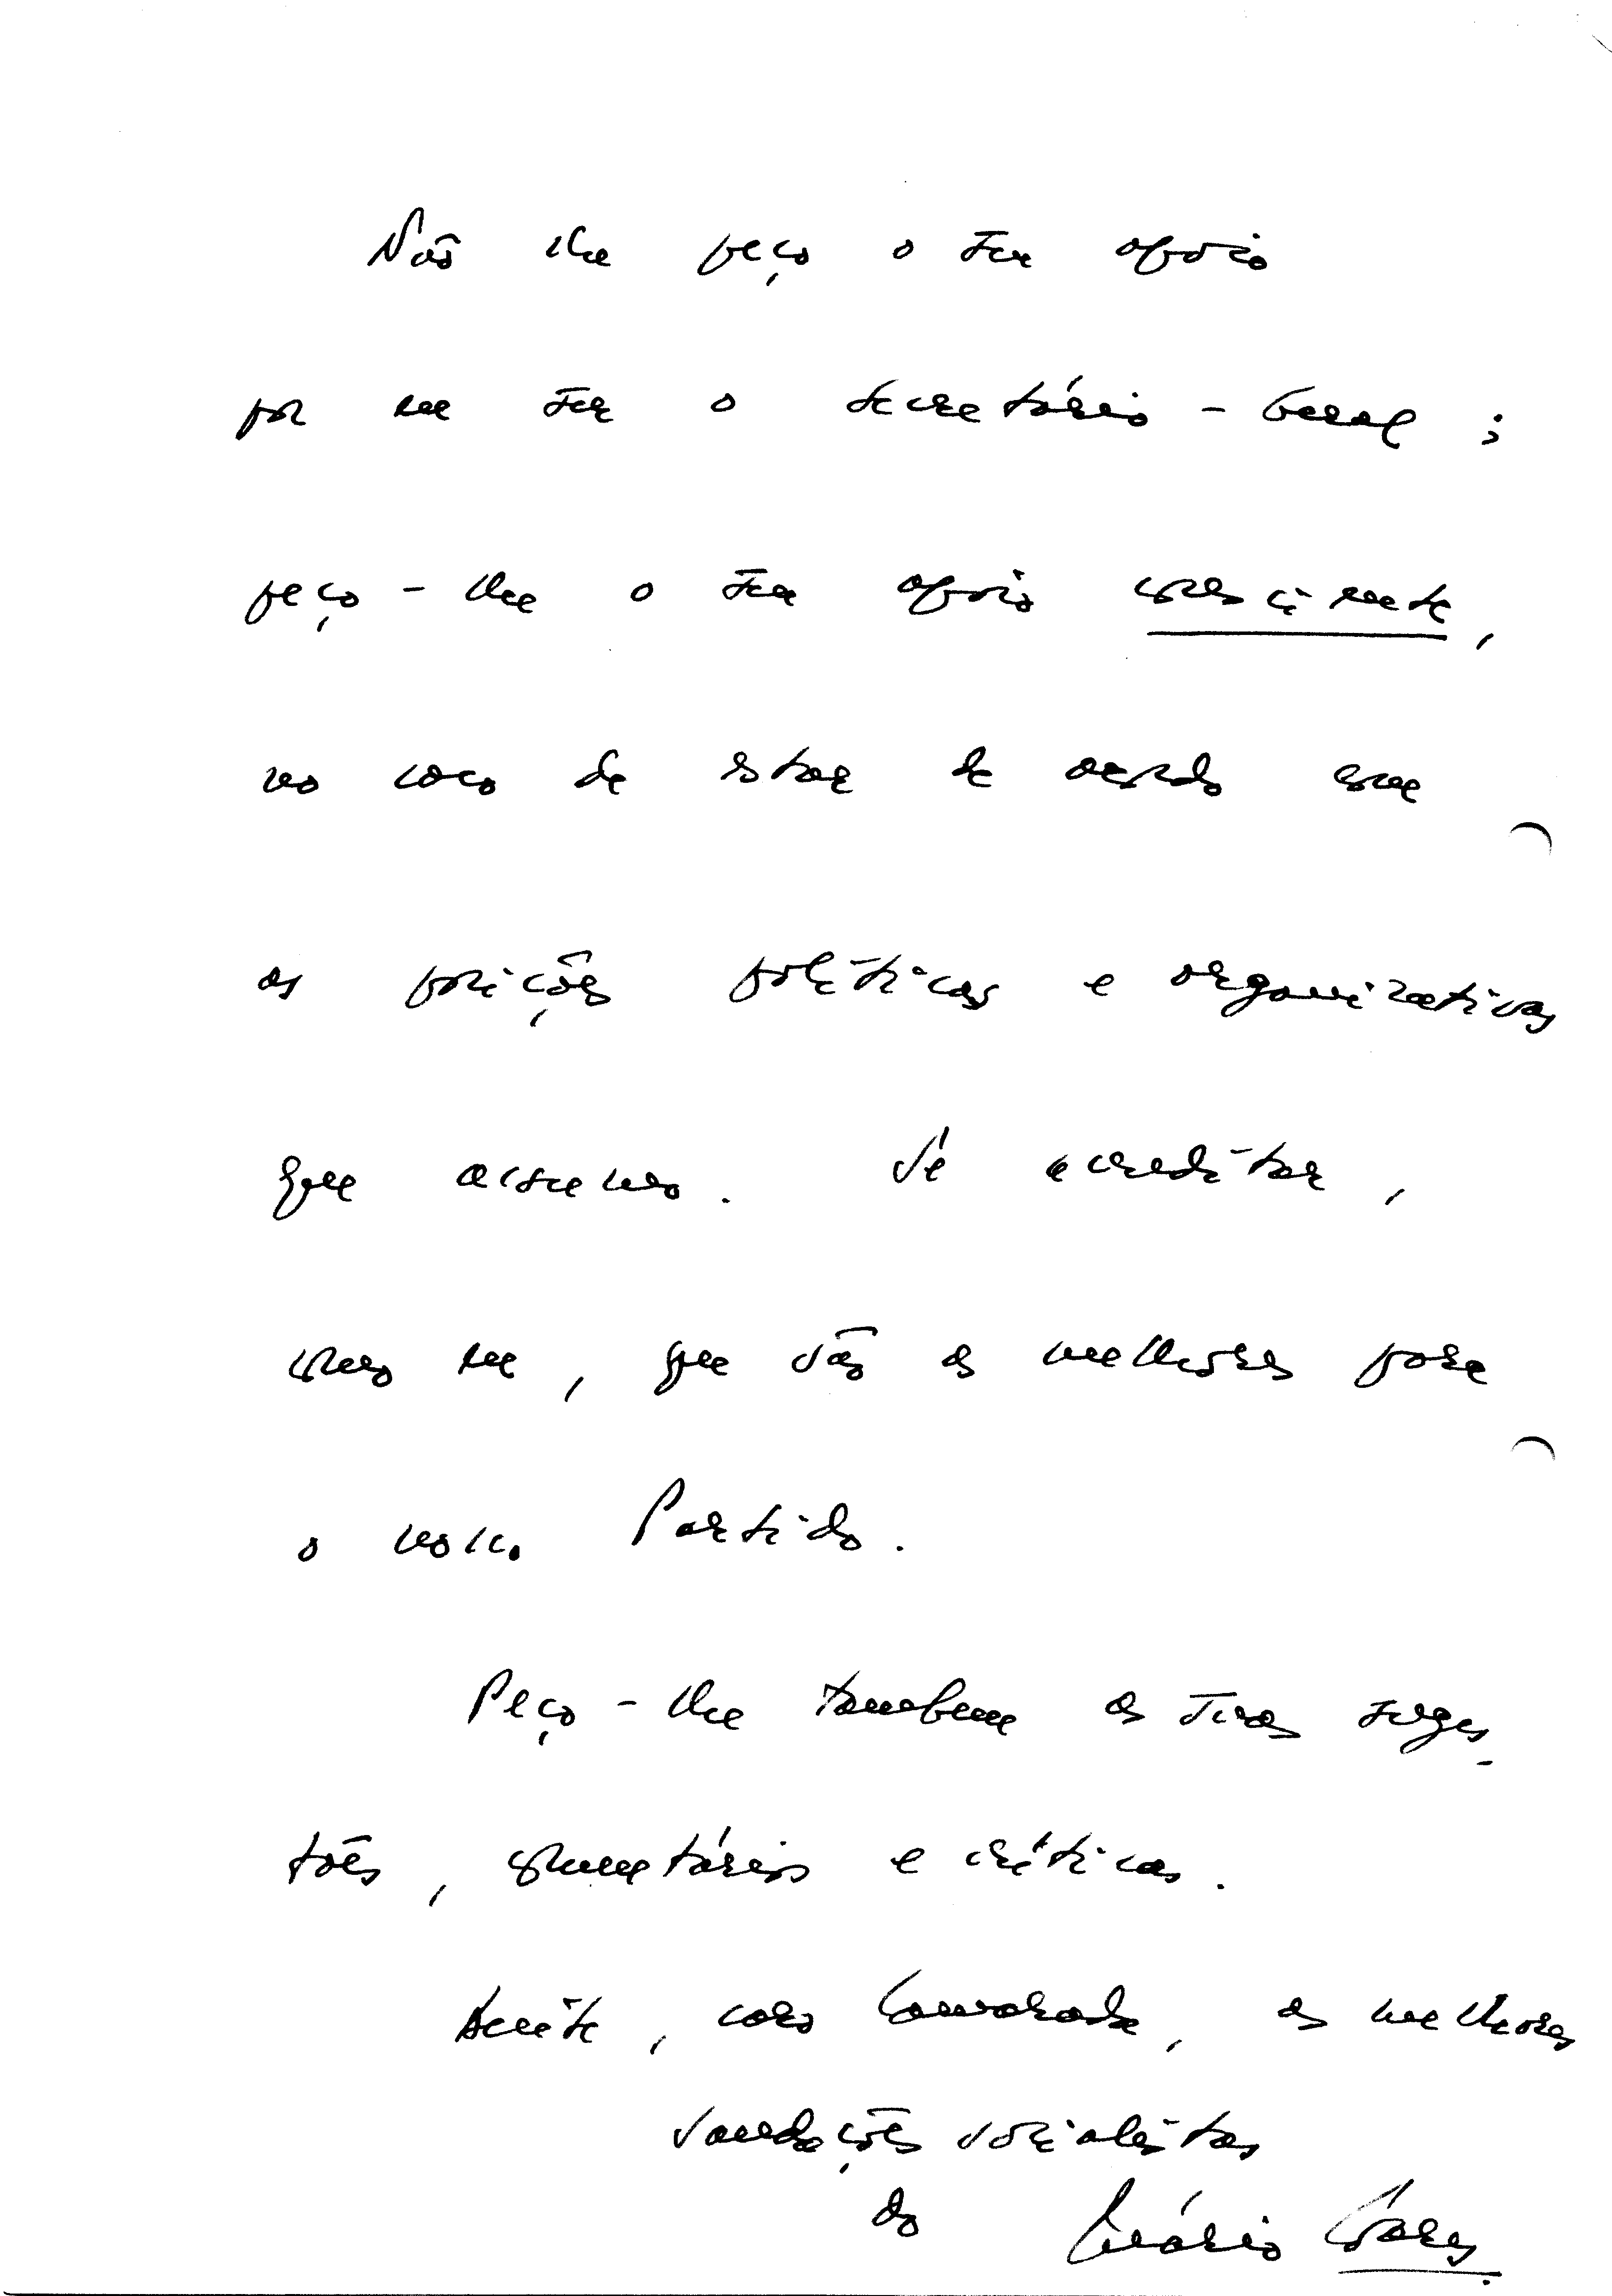 Não lhe peço o seu apoio
por eu ser o Secretário-Geral;
peço-lhe o seu apoio consciente,
no caso de estar de acordo com
as posições políticas e organizativas
que assumo. Se acreditar,
como eu, que são as melhores para
o nosso Partido.
Peço-lhe tambem as suas suges-
tões, comentários e críticas.
Aceite, caro Camarada, as melhores
saudações socialistas
do Mário Soares